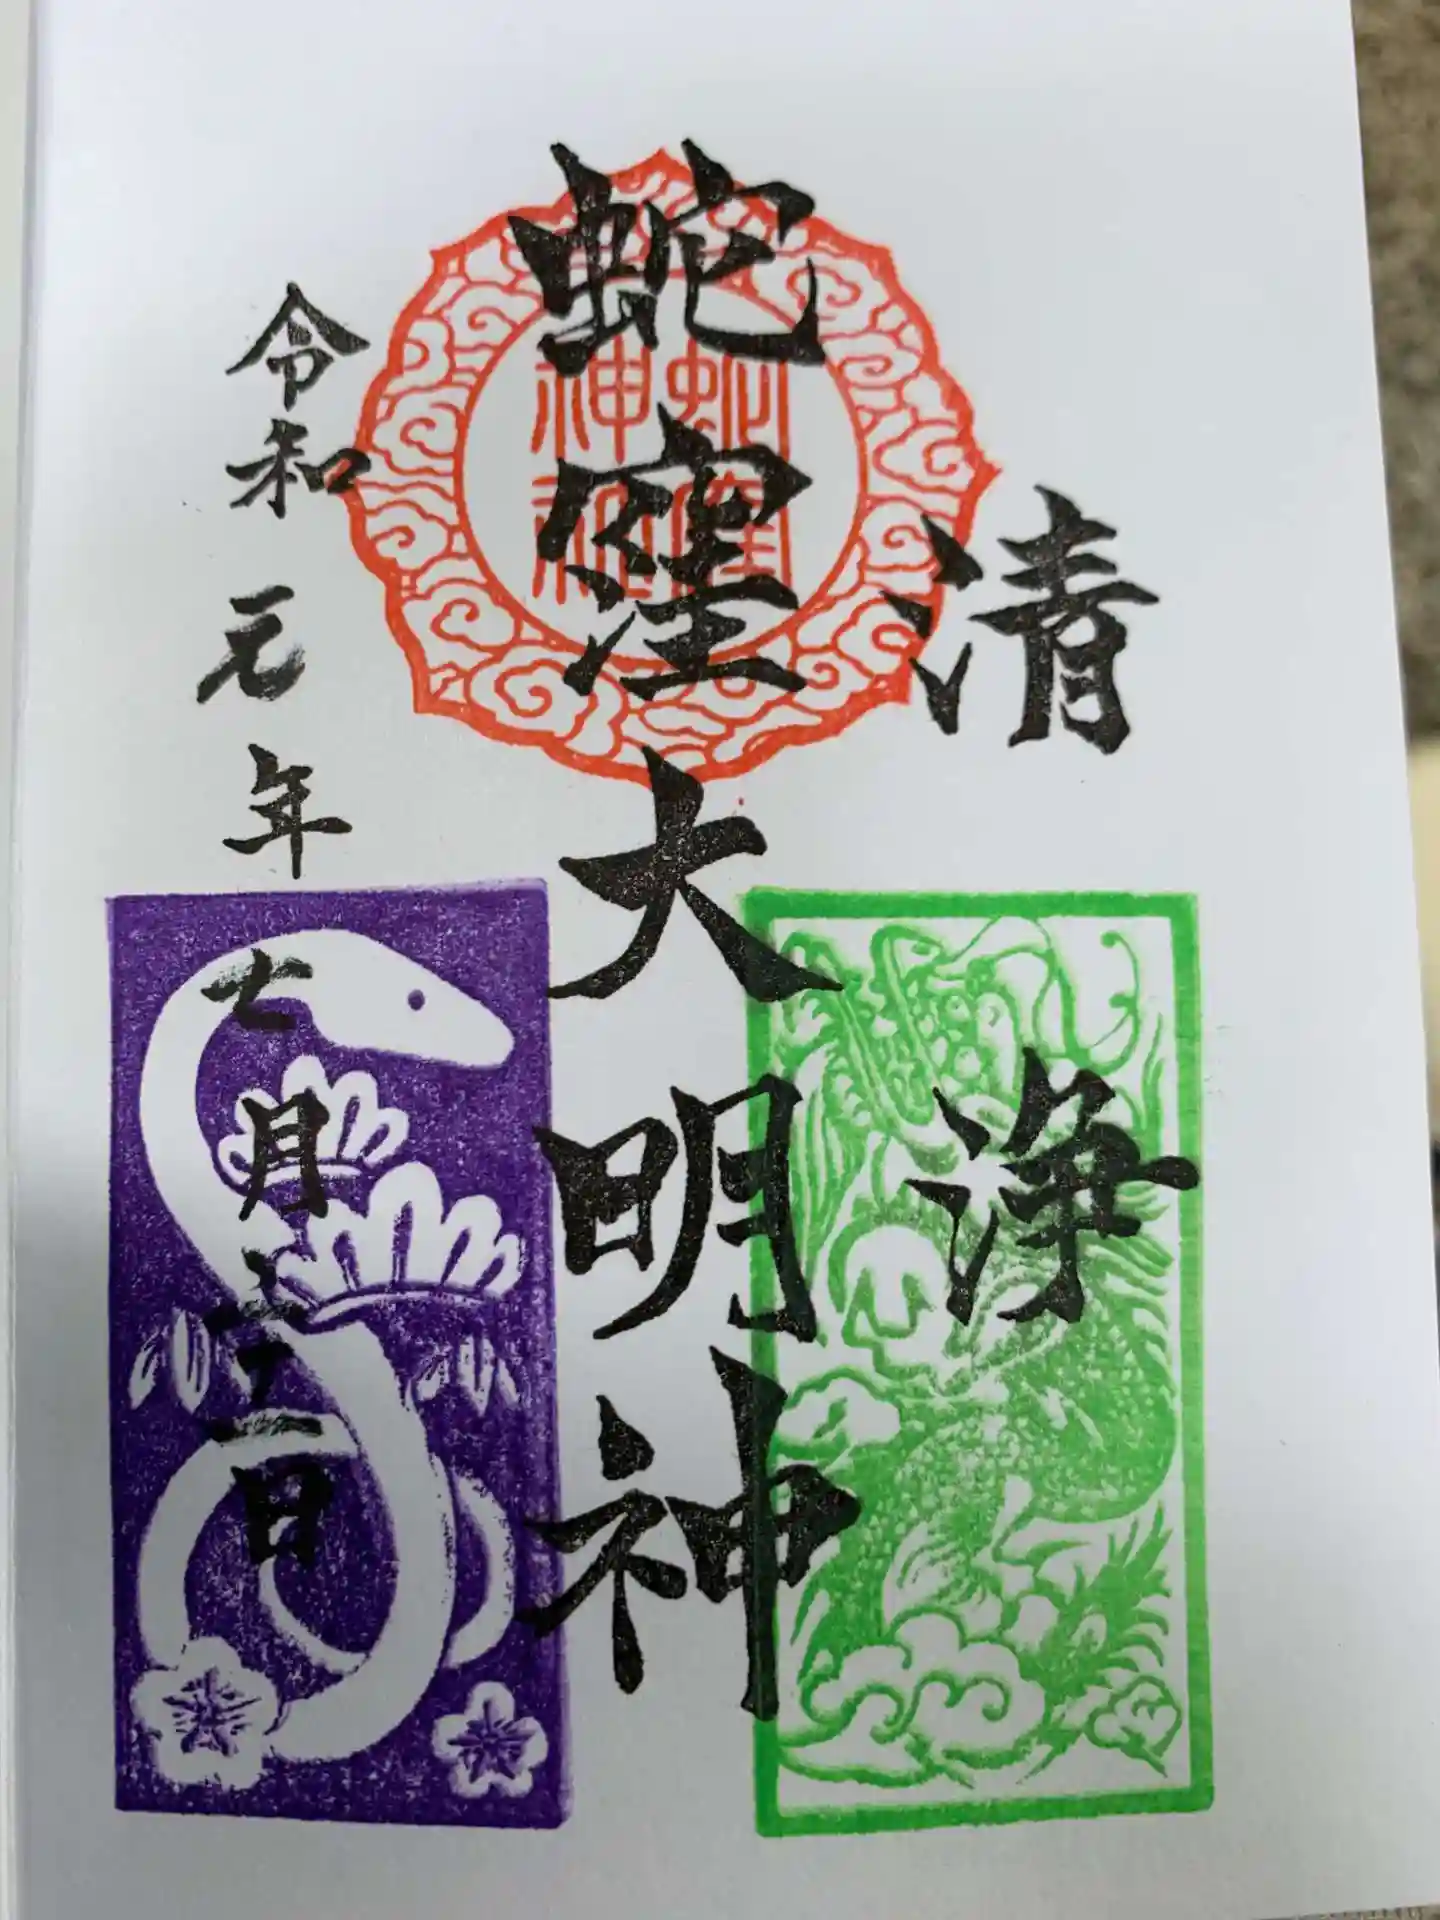 清浄
蛇窪大明神
蛇窪
神社
令和元年七月日